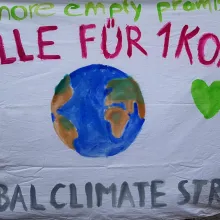 more empty promi
LLE FÜR 1KO
BAL CLIMATE STR